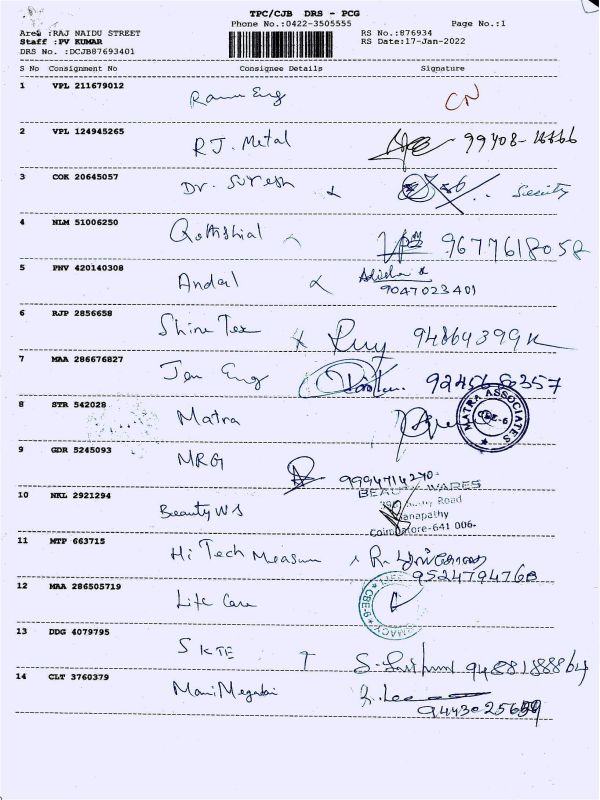 TPC/CJB DRS - PCG
Phone No.:0422-3505555 Page No.:1
Area :RAJ NAIDU STREET RS No.:876934
Staff :PV KUMAR RS Date:17-Jan-2022
DRS No. :DCJB87693401
S No Consignment No Consignee Details Signature
1 VPL 211679012 Eng CN
2 VPL 124945265 RJ. Metal
3 COK 20645057 Dr. Suresh
4 NLM 51006250 9677618058
5 PNV 420140308 Andal
9047023401
6 RJP 2856658 Shine Tex
7 MAA 286676827 Jen Eng
8 STR 542028 Matra MATRA ASSOCIATES CBE-6
9 GDR 5245093 MRG 9994714270
10 NKL 2921294 Beauty WS BEAUTY WARES
Road
Ganapathy
Coimbatore-641 006.
11 MTP 663715 Hi Tech Measum
9524794760
12 MAA 286505719 Life Care CBE-6
13 DDG 4079795 SKTE 9488188864
14 CLT 3760379 Mani Megalai